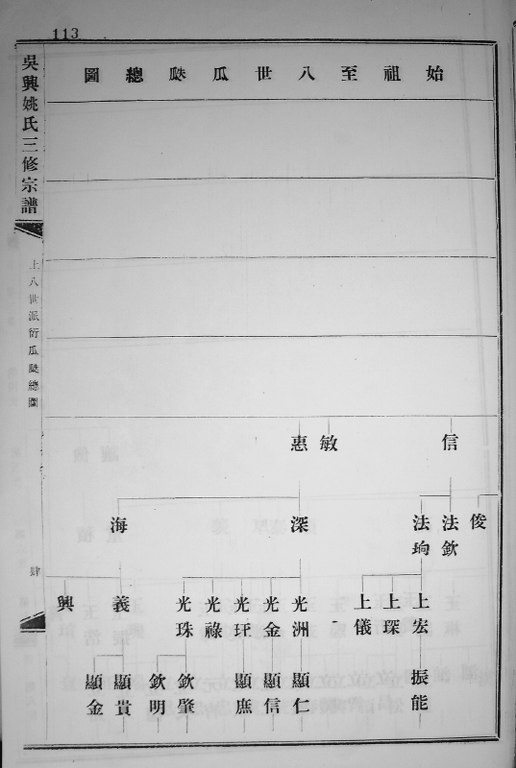 113
始祖至八世瓜瓞總圖
吳興姚氏三修宗譜
上八世派衍瓜瓞總圖
肆
信
敏
惠
俊
法欽
法珣
深
海
上宏
上琛
上儀
光洲
光金
光玨
光祿
光珠
義
興
振能
顯仁
顯信
顯庶
欽肇
欽明
顯貴
顯金